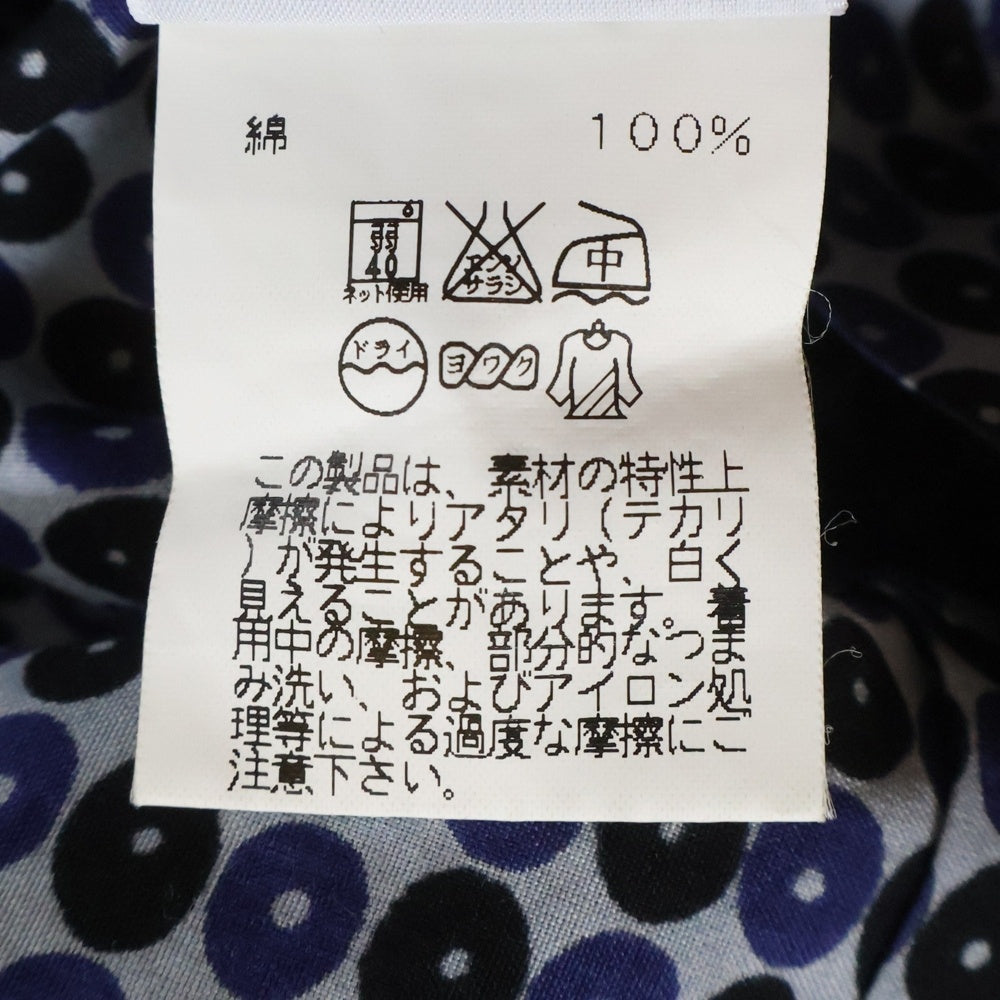 綿 100%
弱
40
ネット使用
エンソ
サラシ
中
ドライ
ヨワク
この製品は、素材の特性上
摩擦によりアタリ(テカリ
)が発生することや、白く
見えることがあります。着
用中の摩擦、部分的なつま
み洗い、およびアイロン処
理等による過度な摩擦にご
注意下さい。